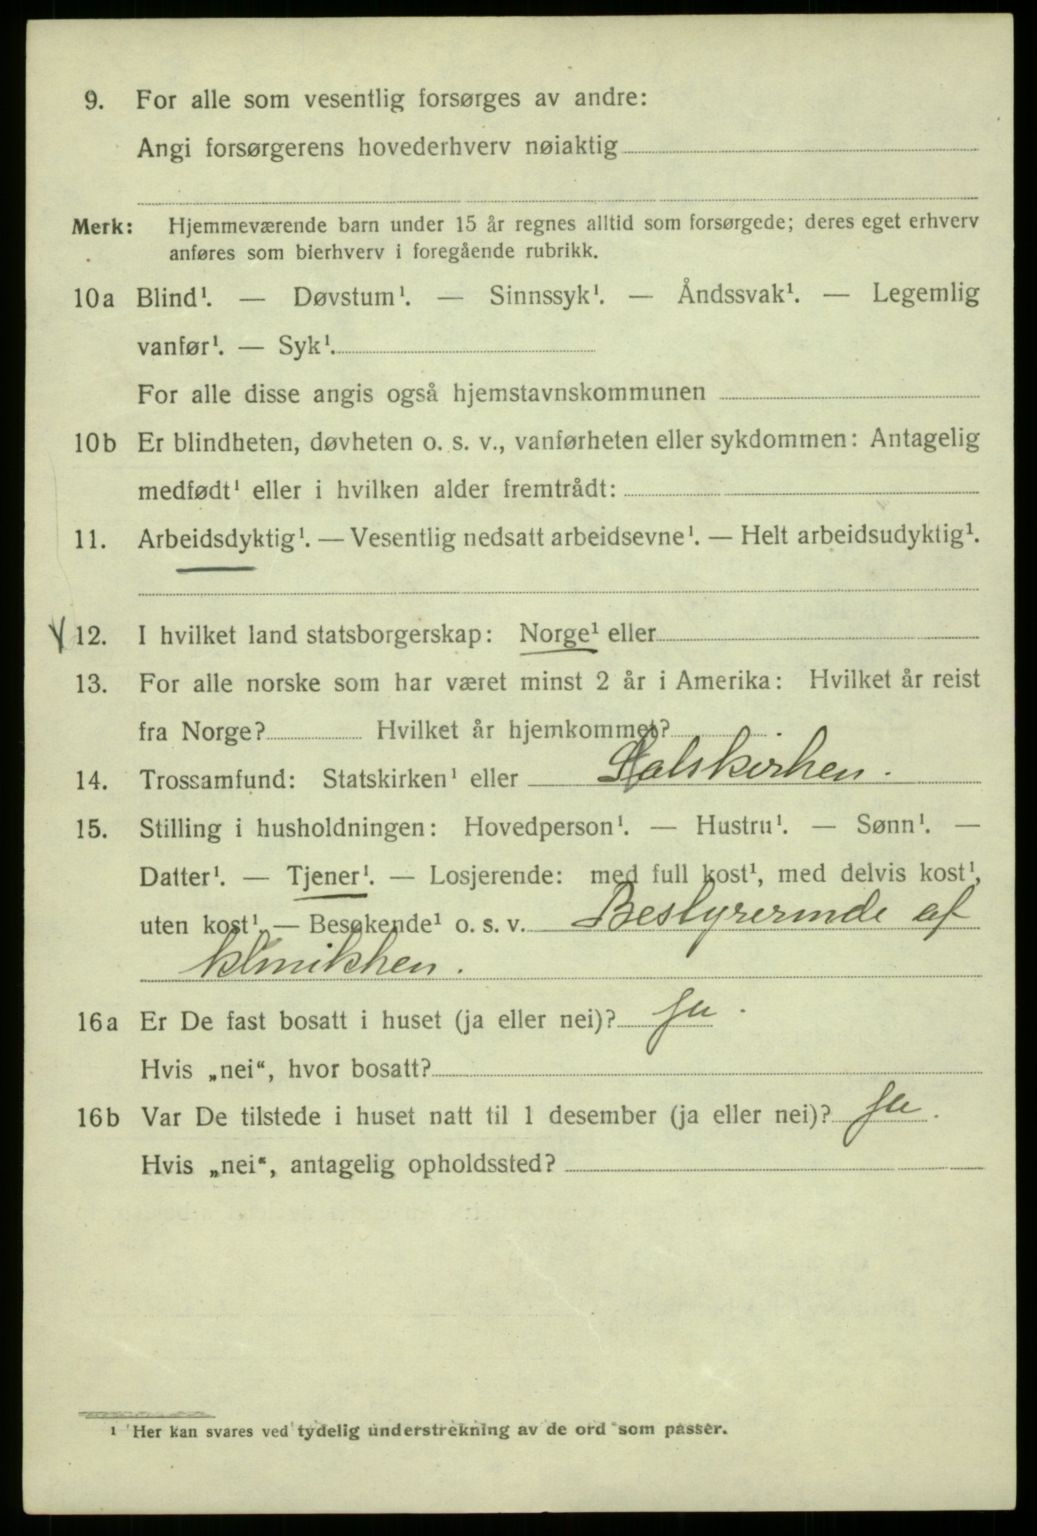 9. For alle som vesentlig forsørges av andre:
Angi forsørgerens hovederhverv nøiaktig
Merk: Hjemmeværende barn under 15 år regnes alltid som forsørgede; deres eget erhverv
anføres som bierhverv i foregående rubrikk.
10a Blind¹. — Døvstum¹. — Sinnssyk¹. — Åndssvak¹. — Legemlig
vanfør¹. — Syk¹.
For alle disse angis også hjemstavnskommunen
10b Er blindheten, døvheten o. s. v., vanførheten eller sykdommen: Antagelig
medfødt¹ eller i hvilken alder fremtrådt:
11. Arbeidsdyktig¹. — Vesentlig nedsatt arbeidsevne¹. — Helt arbeidsudyktig¹.
12. I hvilket land statsborgerskap: Norge¹ eller
13. For alle norske som har været minst 2 år i Amerika: Hvilket år reist
fra Norge? Hvilket år hjemkommet?
14. Trossamfund: Statskirken¹ eller Statskirken.
15. Stilling i husholdningen: Hovedperson¹. — Hustru¹. — Sønn¹. —
Datter¹. — Tjener¹. — Losjerende: med full kost¹, med delvis kost¹,
uten kost¹. — Besøkende¹ o. s. v. Bestyrerinde af
klinikken.
16a Er De fast bosatt i huset (ja eller nei)? ja.
Hvis „nei“, hvor bosatt?
16b Var De tilstede i huset natt til 1 desember (ja eller nei)? ja.
Hvis „nei“, antagelig opholdssted?
¹ Her kan svares ved tydelig understrekning av de ord som passer.